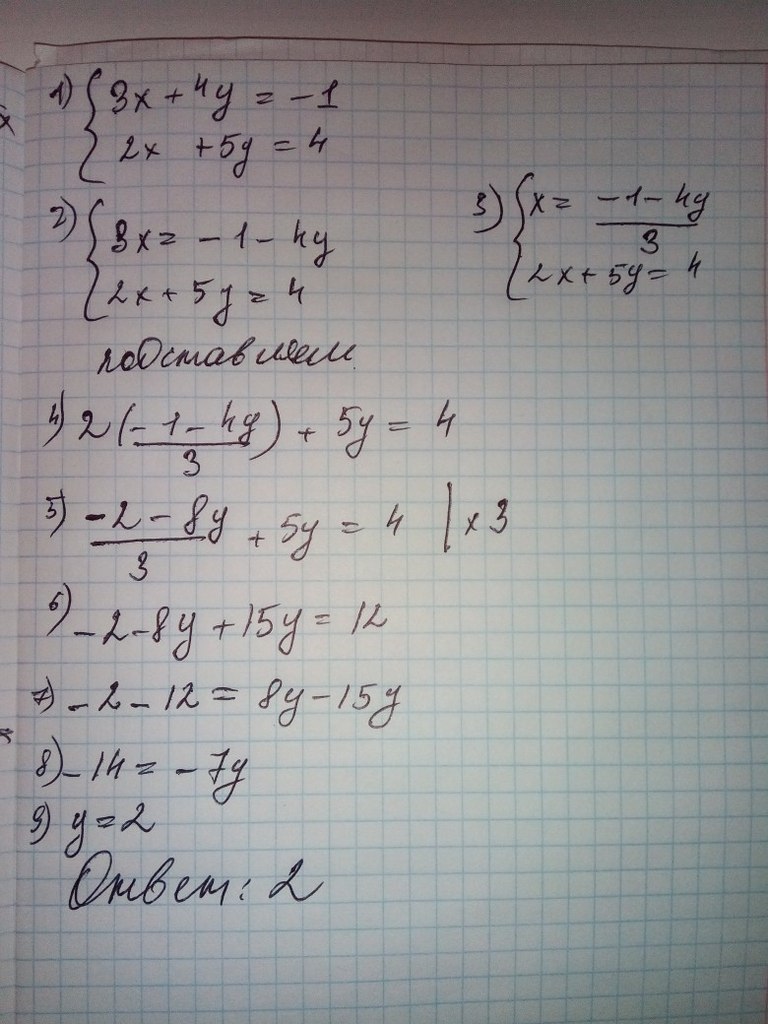 1) { 3x + 4y = -1
2x + 5y = 4
2) { 3x = -1 - 4y
2x + 5y = 4
3) { x = (-1 - 4y)/3
2x + 5y = 4
подставляем
4) 2(-1 - 4y)/3 + 5y = 4
5) (-2 - 8y)/3 + 5y = 4 | x 3
6) -2 - 8y + 15y = 12
7) -2 - 12 = 8y - 15y
8) -14 = -7y
9) y = 2
Ответ: 2